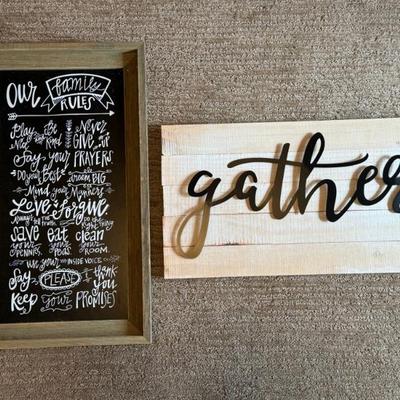 Our family RULES
Play Nice Be Kind Never Give up
Say your PRAYERS
Do your Best DREAM BIG
Mind your Manners
Love & Forgive
tell the TRUTH Do the Right Thing
save your PENNIES eat your PEAS clean your ROOM
use your INSIDE VOICE
Say PLEASE & thank you
Keep your PROMISES
gather